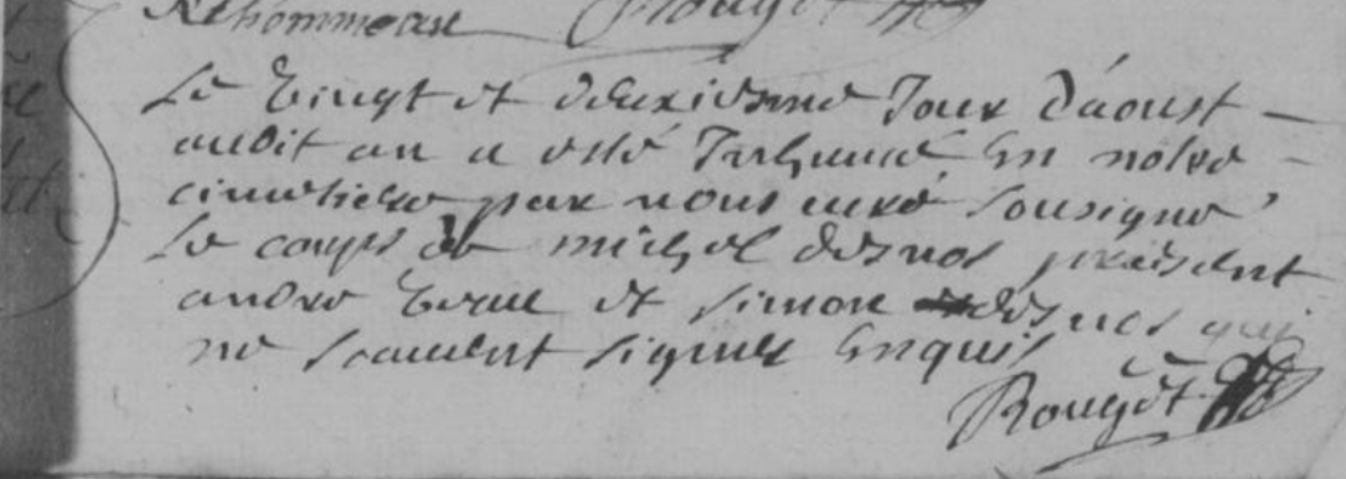 Rethommeau Rougét
Le vingt et deuxiesme Jour d'aoust
audit an a esté Inhumé En notre
cimetiere par nous curé sousigné
Le corps de michel desnos présent
andre et simon desnos qui
ne scauent signer Enquis
Rougét